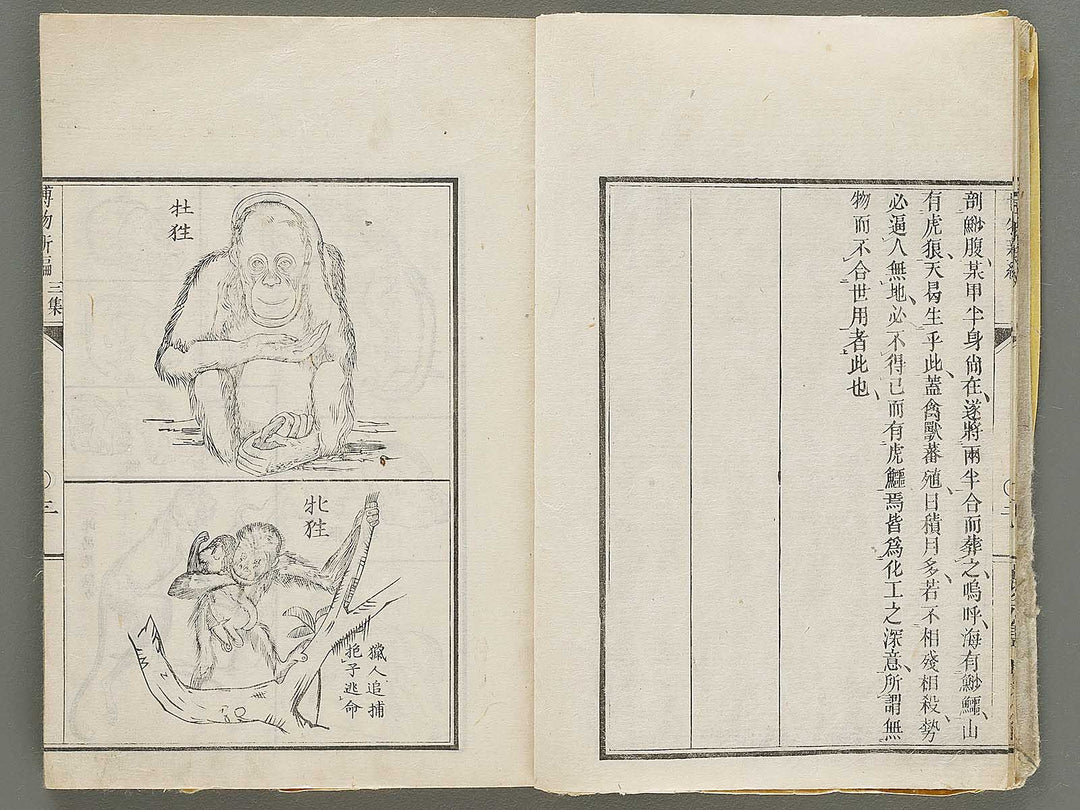 剖鯋腹某甲半身尙在遂將兩半合而葬之嗚呼海有鯋鱷山
有虎狼天曷生乎此蓋禽獸蕃殖日積月多若不相殘相殺勢
必逼人無地必不得已而有虎鱷焉皆爲化工之深意所謂無
物而不合世用者此也
牡狌
牝狌
獵人追捕
抱子逃命
博物新編 三集
三